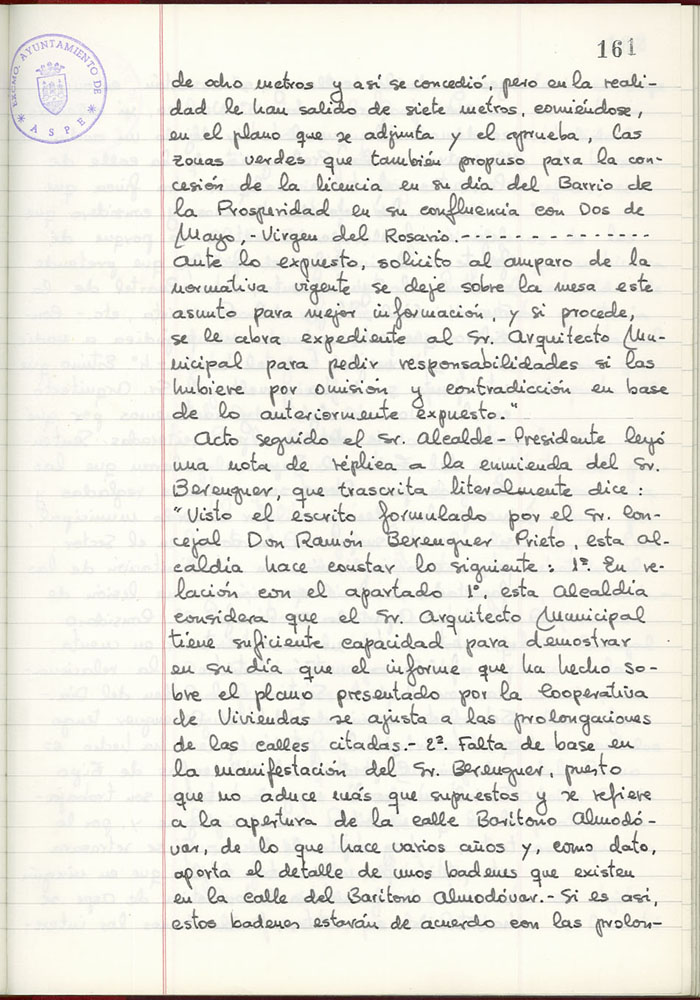 161
EXCMO. AYUNTAMIENTO DE
ASPE
de ocho metros y así se concedió, pero en la reali-
dad le han salido de siete metros, comiéndose,
en el plano que se adjunta y el aprueba, las
zonas verdes que también propuso para la con-
cesión de la licencia en su día del Barrio de
la Prosperidad en su confluencia con Dos de
Mayo,- Virgen del Rosario.- - - - - - - - - - - - - -
Ante lo expuesto, solicito al amparo de la
normativa vigente se deje sobre la mesa este
asunto para mejor información, y si procede,
se le abra expediente al Sr. Arquitecto Mu-
nicipal para pedir responsabilidades si las
hubiere por omisión y contradicción en base
de lo anteriormente expuesto."
Acto seguido el Sr. Alcalde-Presidente leyó
una nota de réplica a la enmienda del Sr.
Berenguer, que trascrita literalmente dice:
"Visto el escrito formulado por el Sr. Con-
cejal Don Ramón Berenguer Prieto, esta al-
caldía hace constar lo siguiente: 1º. En re-
lación con el apartado 1º, esta Alcaldía
considera que el Sr. Arquitecto Municipal
tiene suficiente capacidad para demostrar
en su día que el informe que ha hecho so-
bre el plano presentado por la Cooperativa
de Viviendas se ajusta a las prolongaciones
de las calles citadas.- 2ª. Falta de base en
la manifestación del Sr. Berenguer, puesto
que no aduce más que supuestos y se refiere
a la apertura de la calle Barítono Almodó-
var, de lo que hace varios años y, como dato,
aporta el detalle de unos badenes que existen
en la calle del Barítono Almodóvar.- Si es así,
estos badenes estarán de acuerdo con las prolon-